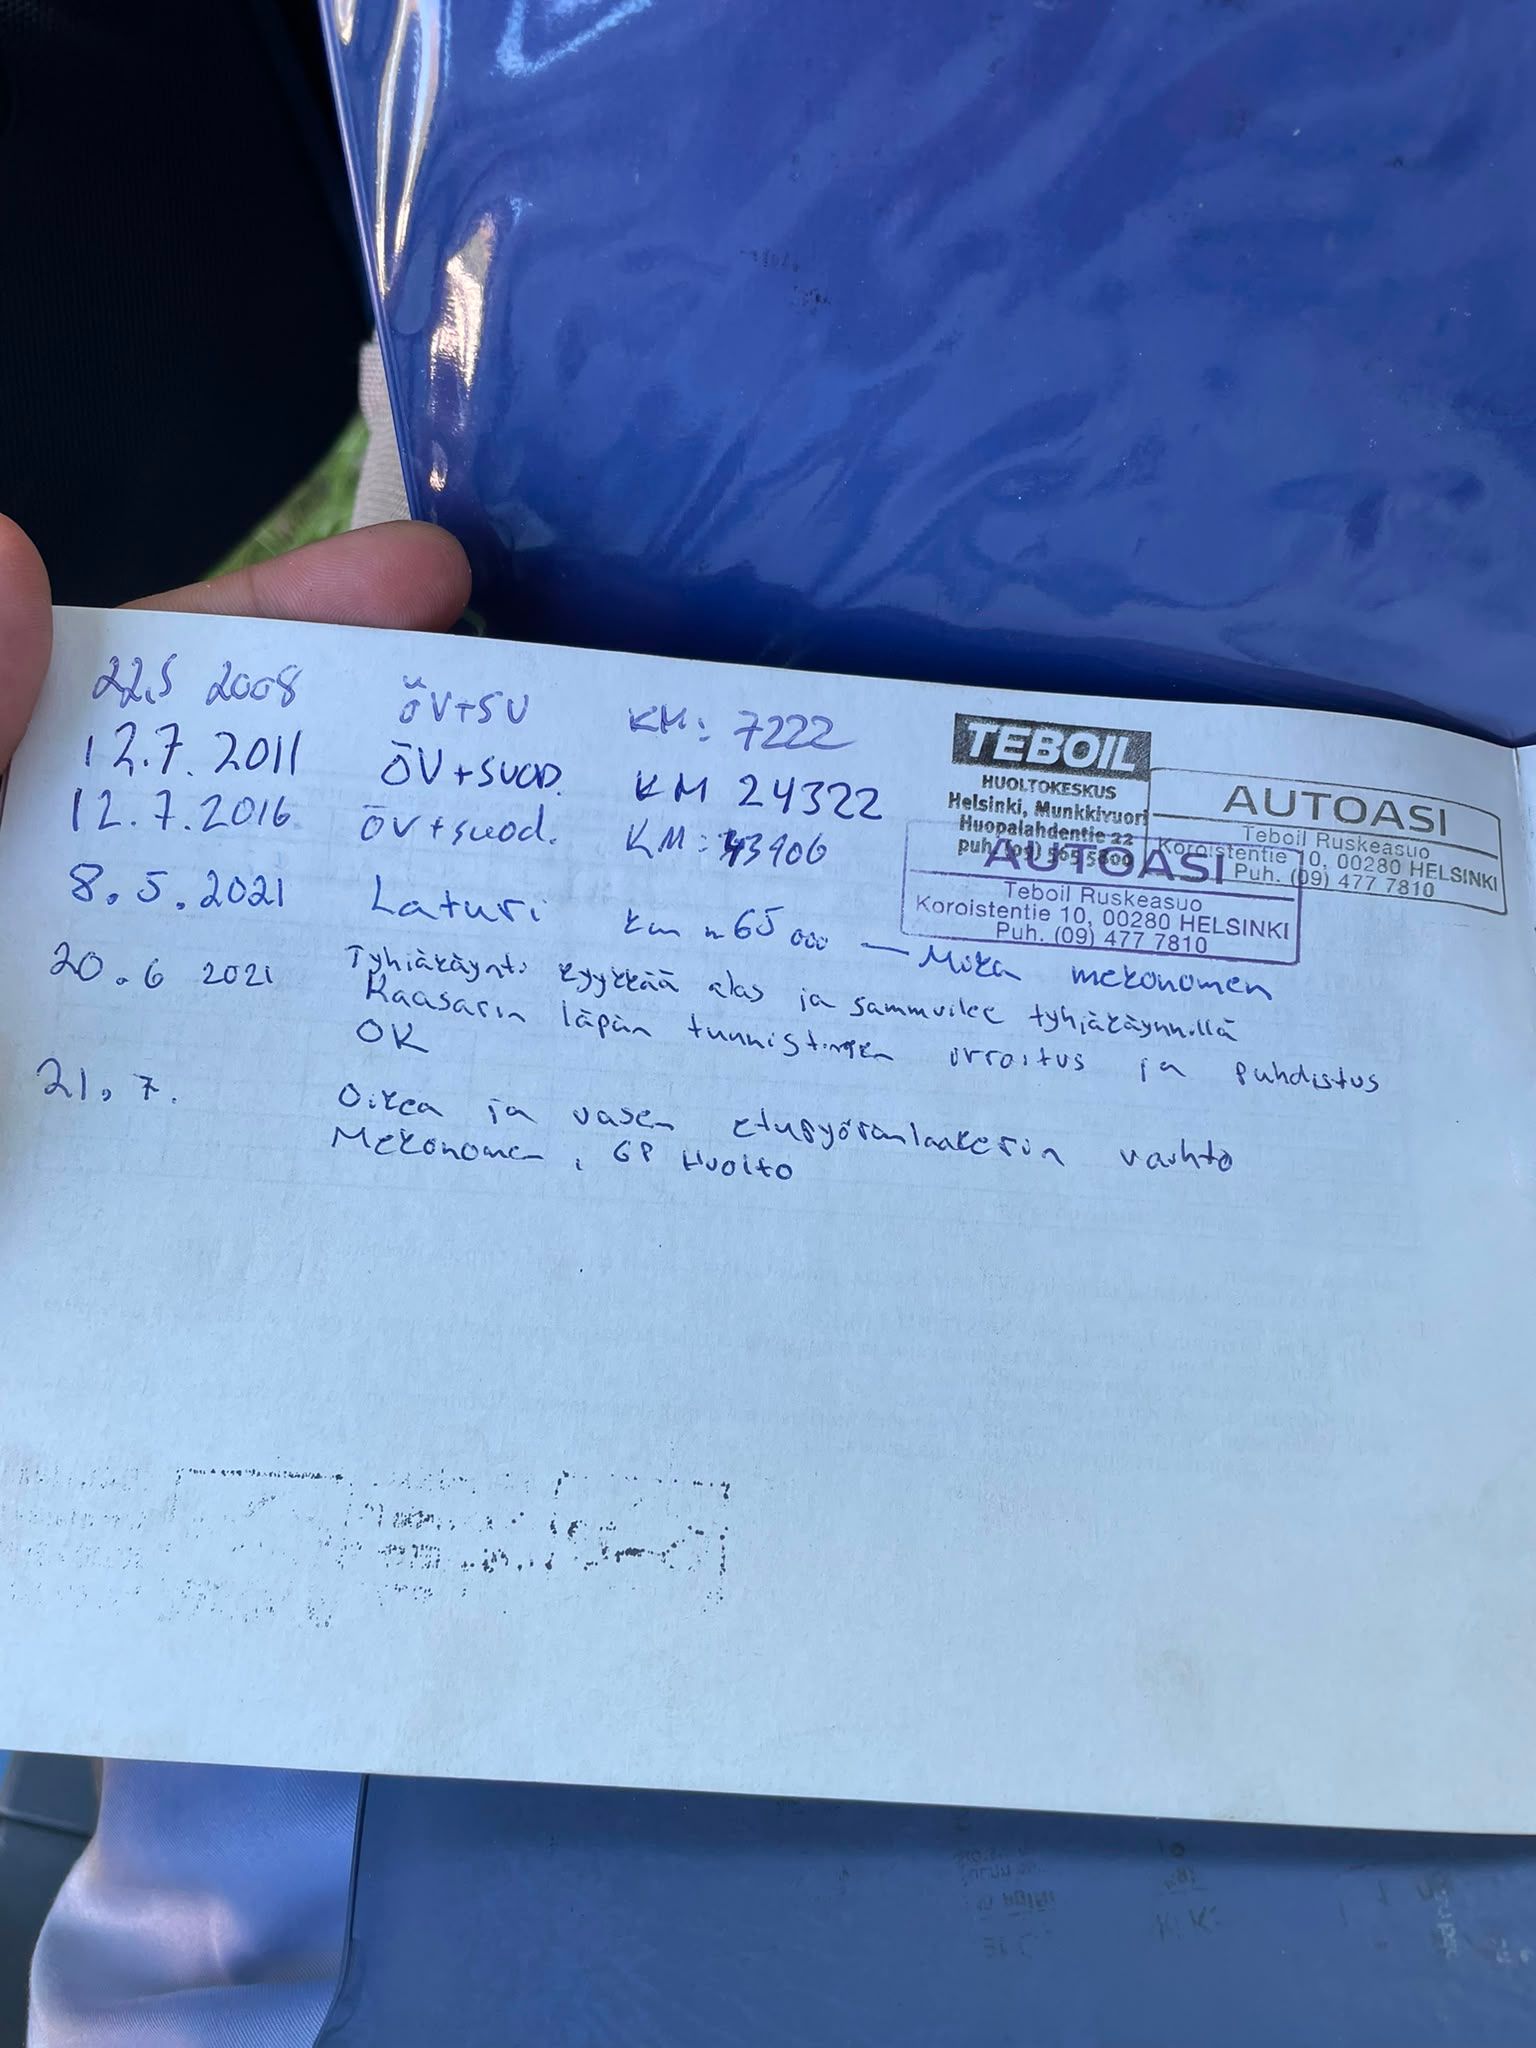 22.5 2008 ÖV+SU KM: 7222
12.7.2011 ÖV+SUOD. KM 24322
12.7.2016 ÖV+suod. KM: 43906
8.5.2021 Laturi km n 65000 — Mika mekonomen
20.6 2021 Tyhjäkäynti kyykkää alas ja sammuilee tyhjäkäynnillä
Kaasarin läpän tunnistimen irroitus ja puhdistus
OK
21.7. Oikea ja vasen etupyöränlaakerin vaihto
Mekonomen, GP Huolto
TEBOIL
HUOLTOKESKUS
Helsinki, Munkkivuori
Huopalahdentie 22
puh. (09) 565 5600
AUTOASI
Teboil Ruskeasuo
Koroistentie 10, 00280 HELSINKI
Puh. (09) 477 7810
AUTOASI
Teboil Ruskeasuo
Koroistentie 10, 00280 HELSINKI
Puh. (09) 477 7810